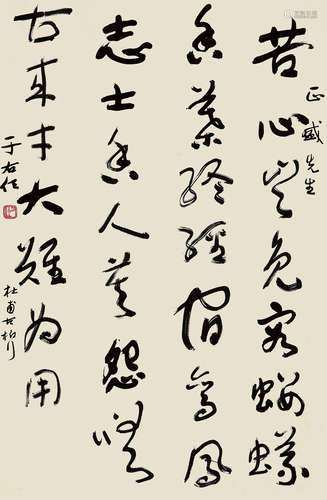 正威先生
苦心豈免容螻蟻
香葉終經宿鸞鳳
志士幽人莫怨嗟
古來才大難為用
杜甫古柏行
于右任